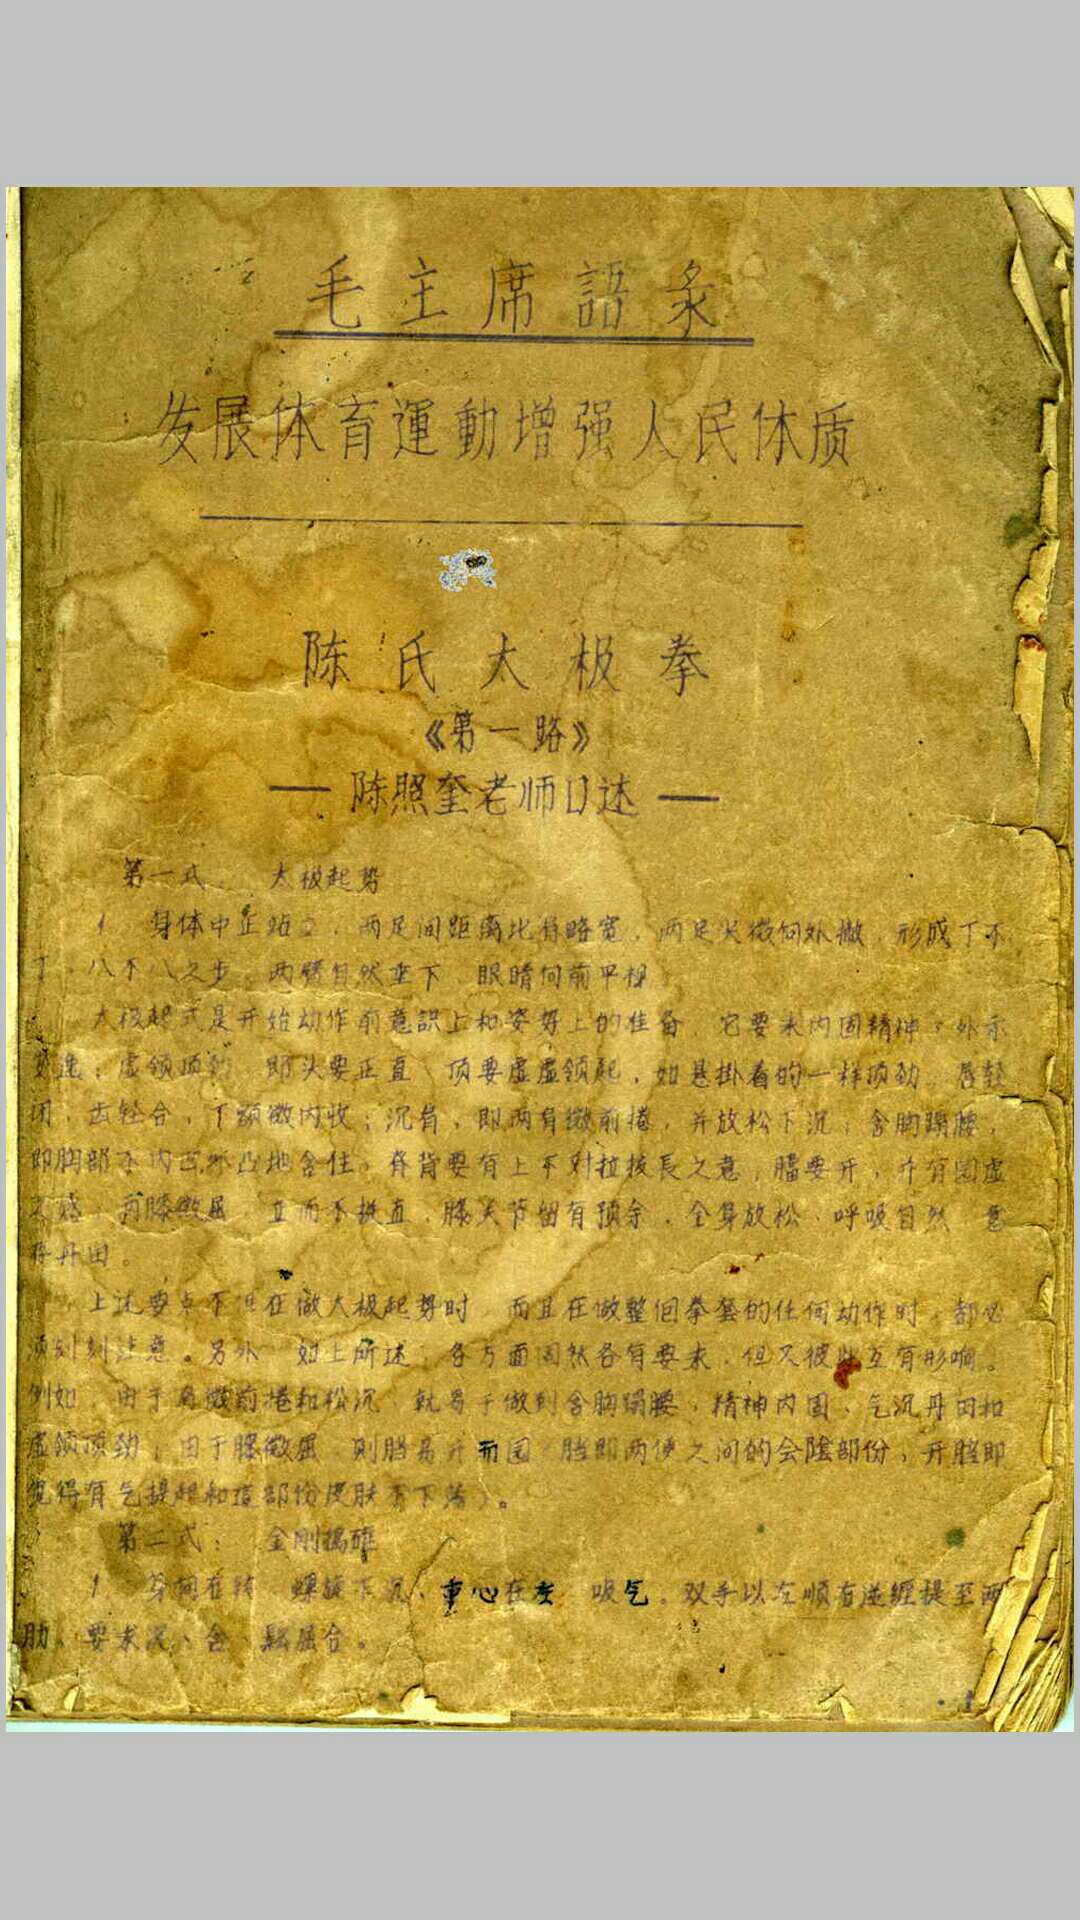 毛主席語彔
发展体育運動增强人民体质
陈氏太极拳
《第一路》
— 陈照奎老师口述 —
第一式 太极起势
1 身体中正站立，两足间距离比肩略宽，两足尖微向外撇，形成丁不
丁，八不八之步，两臂自然垂下，眼睛向前平视
太极起式是开始动作前意識上和姿势上的准备，它要求内固精神，外示
安逸；虚领顶劲，即头要正直，顶要虚虚领起，如悬掛着的一样顶劲，唇轻
闭，齿轻合，下颚微内收；沉肩，即两肩微前捲，并放松下沉；含胸蹋腰，
即胸部不内凹外凸地含住。脊背要有上下对拉拔長之意；膪要开，并有园虚
之感；两膝微屈，立而不挺直，膝关节留有预余，全身放松，呼吸自然，意
存丹田。
上述要点不但在做太极起势时，而且在做整個拳套的任何动作时，都必
须刻刻注意。另外，如上所述，各方面固然各有要求，但又彼此互有形响。
例如，由于肩微前捲和松沉，就易于做到含胸蹋腰，精神内固，气沉丹田和
虚领顶劲；由于膝微屈，则膪易开而园（膪即两便之间的会陰部份，开膪即
觉得有气提起和這部份皮肤不下荡）。
第二式： 金刚搗碓
1 身向右转，螺旋下沉，重心在左，吸气。双手以左顺右逆缠提至两
肋，要求沉、含、鬆屈合。